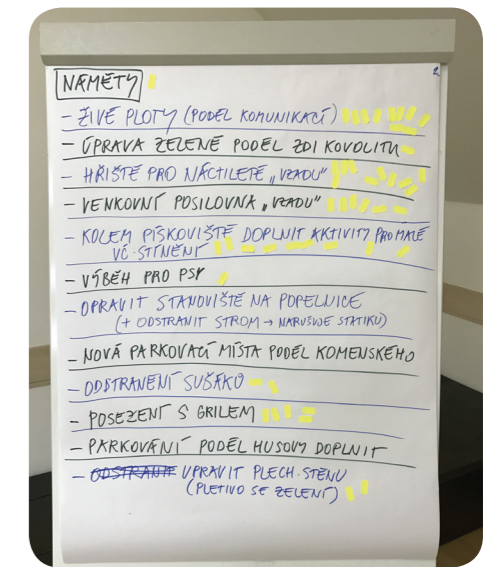 NÁMĚTY
2.
- ŽIVÉ PLOTY (PODÉL KOMUNIKACÍ)
- ÚPRAVA ZELENĚ PODÉL ZDI KOVOLITU
- HŘIŠTĚ PRO NÁCTILETÉ „VZADU"
- VENKOVNÍ POSILOVNA „VZADU"
- KOLEM PÍSKOVIŠTĚ DOPLNIT AKTIVITY PRO MALÉ
VČ. STÍNĚNÍ
- VÝBĚH PRO PSY
- OPRAVIT STANOVIŠTĚ NA POPELNICE
(+ ODSTRANIT STROM → NARUŠUJE STATIKU)
- NOVÁ PARKOVACÍ MÍSTA PODÉL KOMENSKÉHO
- ODSTRANĚNÍ SUŠÁKŮ
- POSEZENÍ S GRILEM
- PARKOVÁNÍ PODÉL HUSOVY DOPLNIT
- ODSTRANIT UPRAVIT PLECH. STĚNU
(PLETIVO SE ZELENÍ)